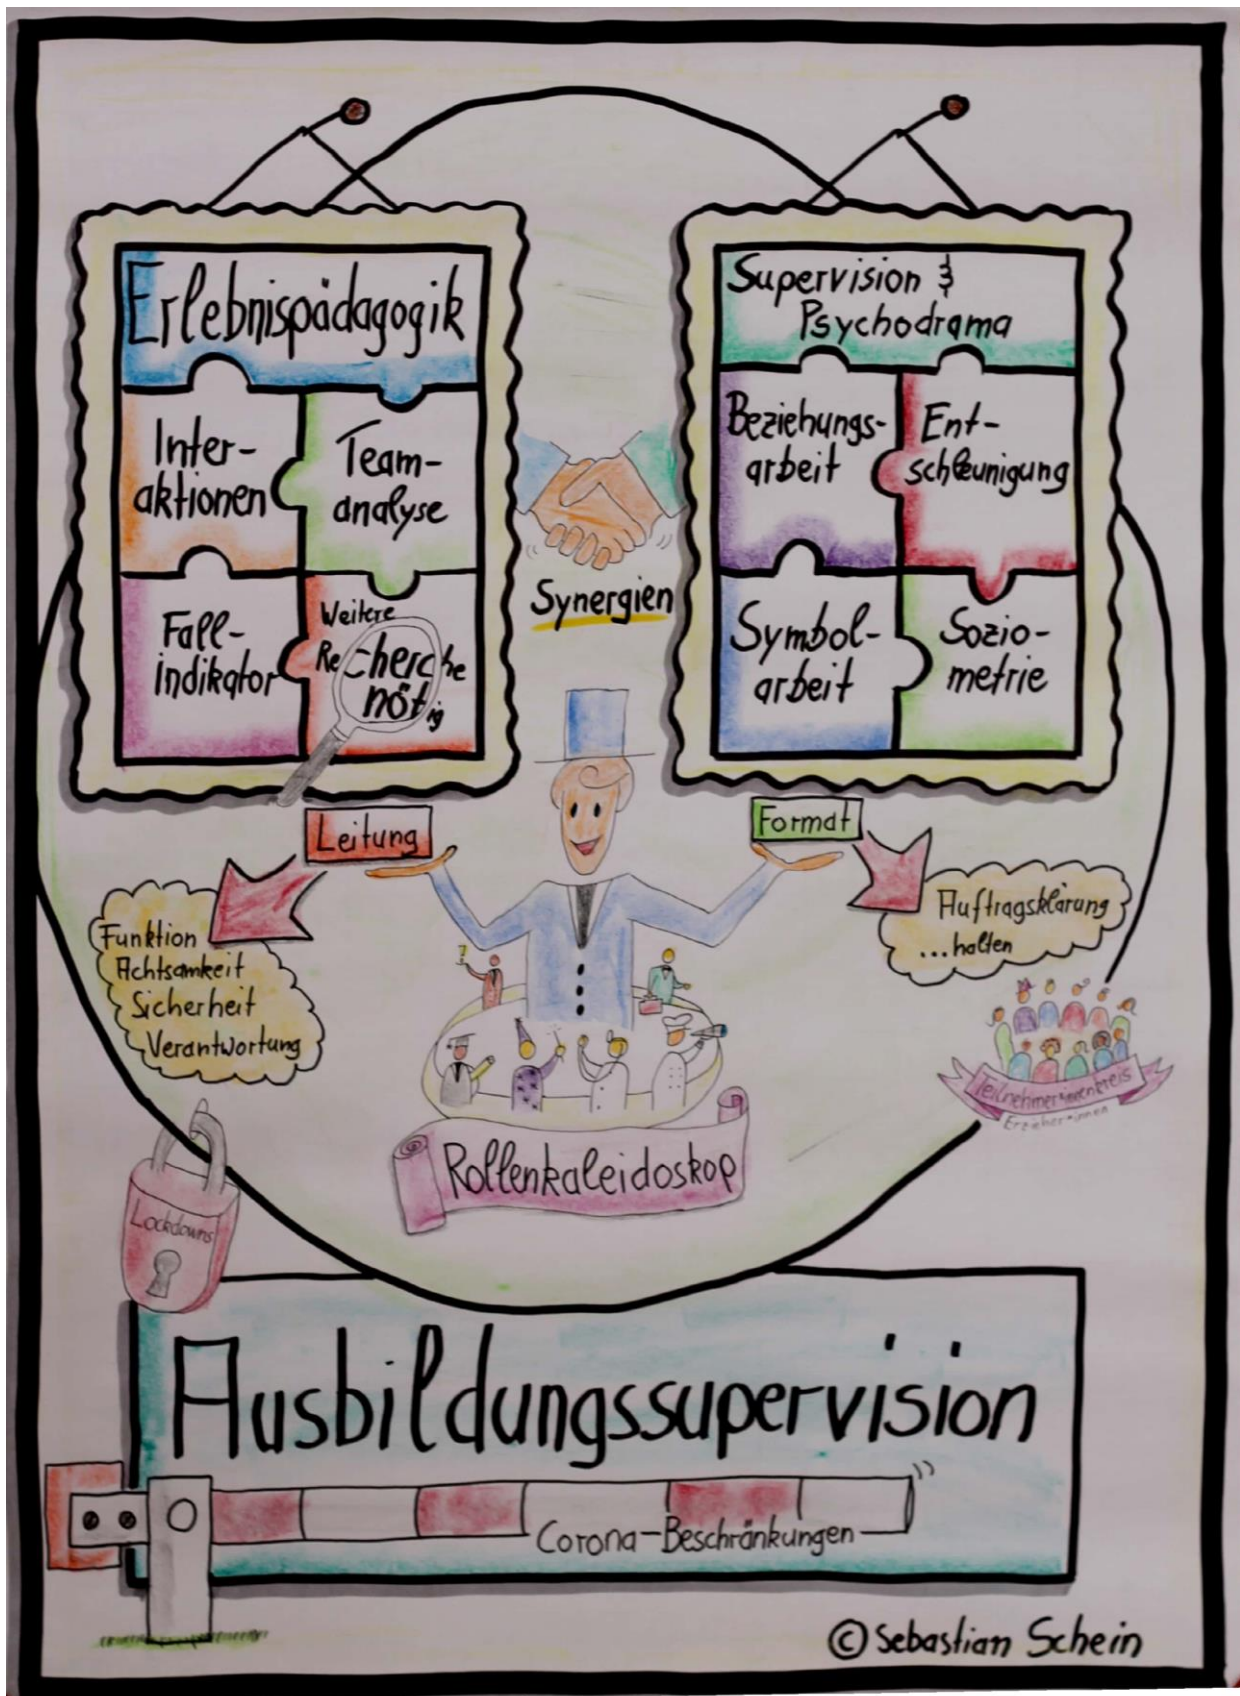 Erlebnispädagogik
Inter-
aktionen
Team-
analyse
Fall-
indikator
Weitere
Recherche
nötig
Supervision &
Psychodrama
Beziehungs-
arbeit
Ent-
schleunigung
Symbol-
arbeit
Sozio-
metrie
Synergien
Leitung
Format
Funktion
Achtsamkeit
Sicherheit
Verantwortung
Auftragsklärung
...halten
Teilnehmer*innenkreis
Erzieher*innen
Rollenkaleidoskop
Lockdowns
Ausbildungssupervision
Corona-Beschränkungen
© Sebastian Schein